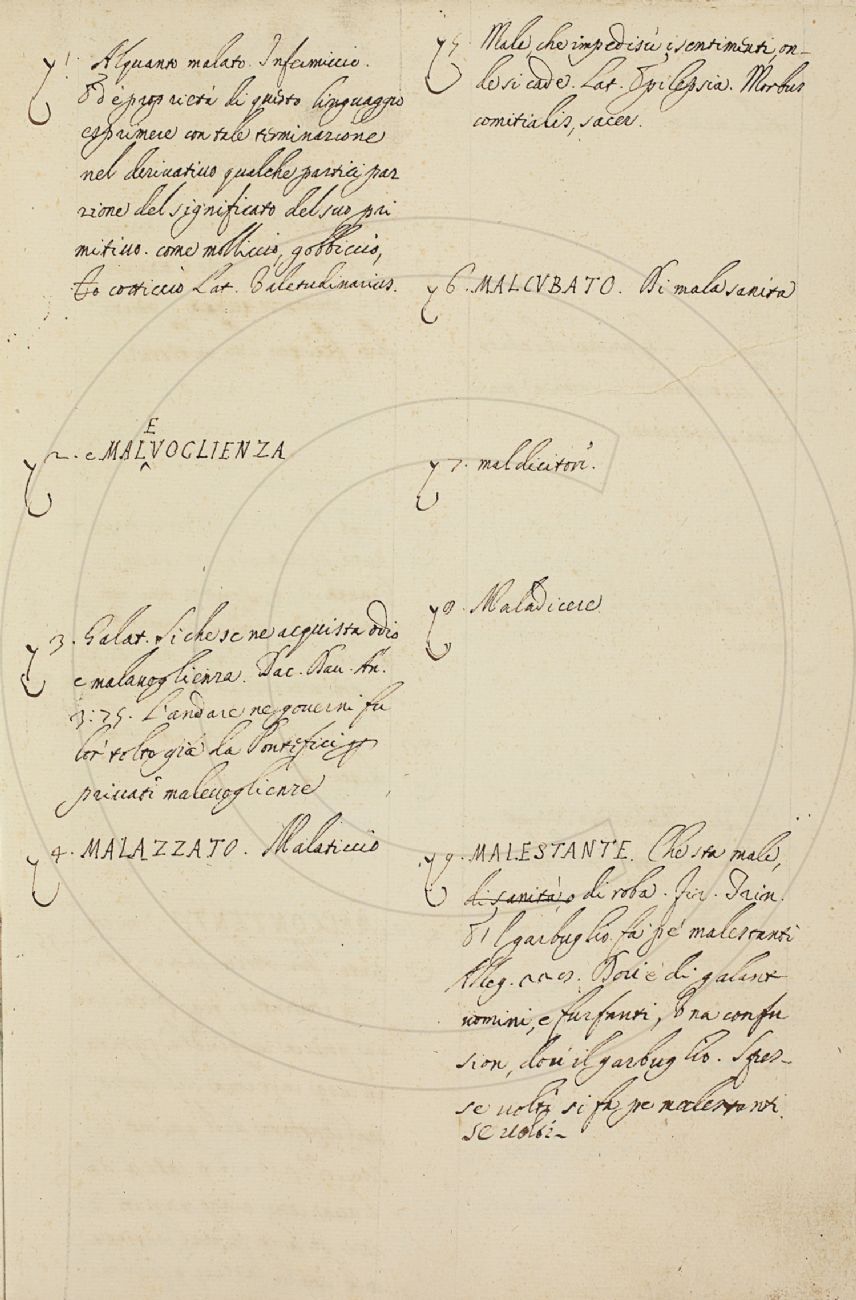 1. Alquanto malato. Infermiccio.
Ed è proprietà di questo linguaggio
esprimere con tale terminazione
nel derivativo qualche partici par
zione del significato del suo pri
mitivo. come molliccio, gobbiccio,
cotticcio Lat. Valetudinarius.
2. e MALEVOGLIENZA
3. Galat. Si che se ne acquista odio
e malavoglienza. Tac. Dav. An.
3:75. L'andare ne governi fu
lor tolto già da Pontefici p
privati malevoglienze
4. MALAZZATO. Malaticcio
5. Male che impedisce i sentimenti, on-
de si cade. Lat. Epilepsia. Morbus
comitialis, sacer.
6. MALCUBATO. Di mala sanità
7. maldicitori.
8. Maladicere
9. MALESTANTE. Che sta male,
di sanità, o di roba. Fir. Trin.
E 'l garbuglio fa pe' malestanti
Alleg. Dov'è di galant
uomini, e furfanti, Una confu
sion, dov'è il garbuglio. Spes-
se volte si fa pe malestanti
se volte-